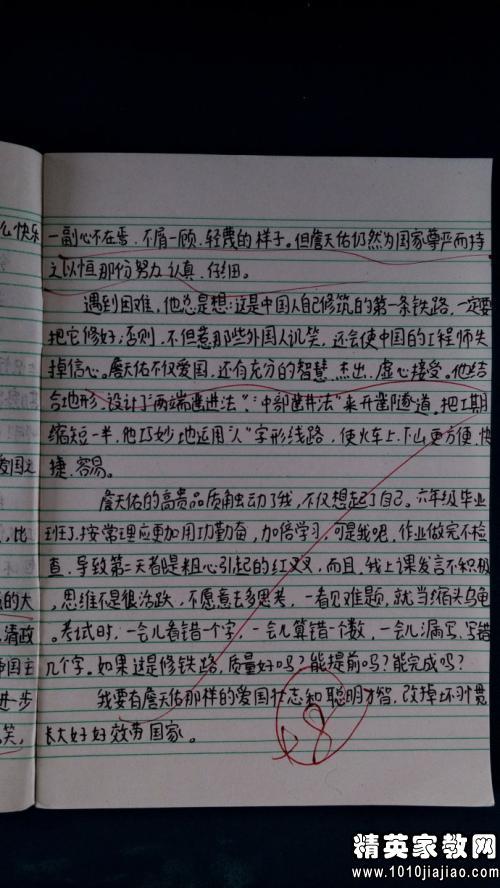 么快乐
一副心不在焉、不屑一顾、轻蔑的样子。但詹天佑仍然为国家尊严而持
之以恒那份努力、认真、仔细。
遇到困难,他总是想:这是中国人自己修筑的第一条铁路,一定要
把它修好;否则,不但惹那些外国人讥笑,还会使中国的工程师失
掉信心。詹天佑不仅爱国,还有充分的智慧、杰出、虚心接受。他结
合地形,设计了“两端凿进法”、“中部凿井法”来开凿隧道,把工期
缩短一半,他巧妙地运用“人”字形线路,使火车上、下山更方便、快
捷、容易。
詹天佑的高贵品质触动了我,不仅想起了自己。六年级毕业
,比
班了,按常理应更加用功勤奋,加倍学习,可是我呢,作业做完不检
查,导致第二天者是粗心引起的红叉叉,而且,我上课发言不积极
的大
,思维不是很活跃,不愿意去多思考,一看见难题,就当缩头乌龟
清政
。考试时,一会儿看错一个字,一会儿算错一个数,一会儿漏写、写错
国主
几个字。如果这是修铁路,质量好吗?能提前吗?能完成吗?
进步
我要有詹天佑那样的爱国壮志和聪明才智,改掉坏习惯,
笑,
长大好好效劳国家。
8
精英家教网
www.1010jiajiao.com